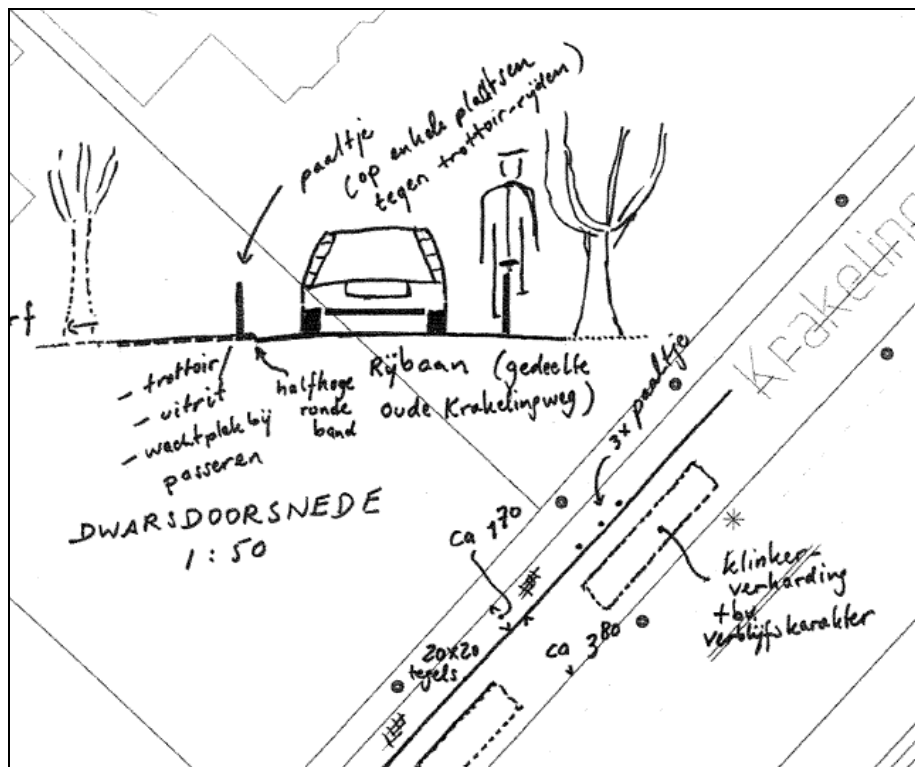 paaltje
(op enkele plaatsen
tegen trottoir-rijden)
rf
- trottoir
- uitrit
- wachtplek bij
passeren
halfhoge
ronde
band
Rijbaan (gedeelte
oude Krakelingweg)
DWARSDOORSNEDE
1:50
Krakeling
3x paaltje
ca 1⁷⁰
20x20
tegels
ca 3⁸⁰
klinker-
verharding
tbv
verblijfskarakter